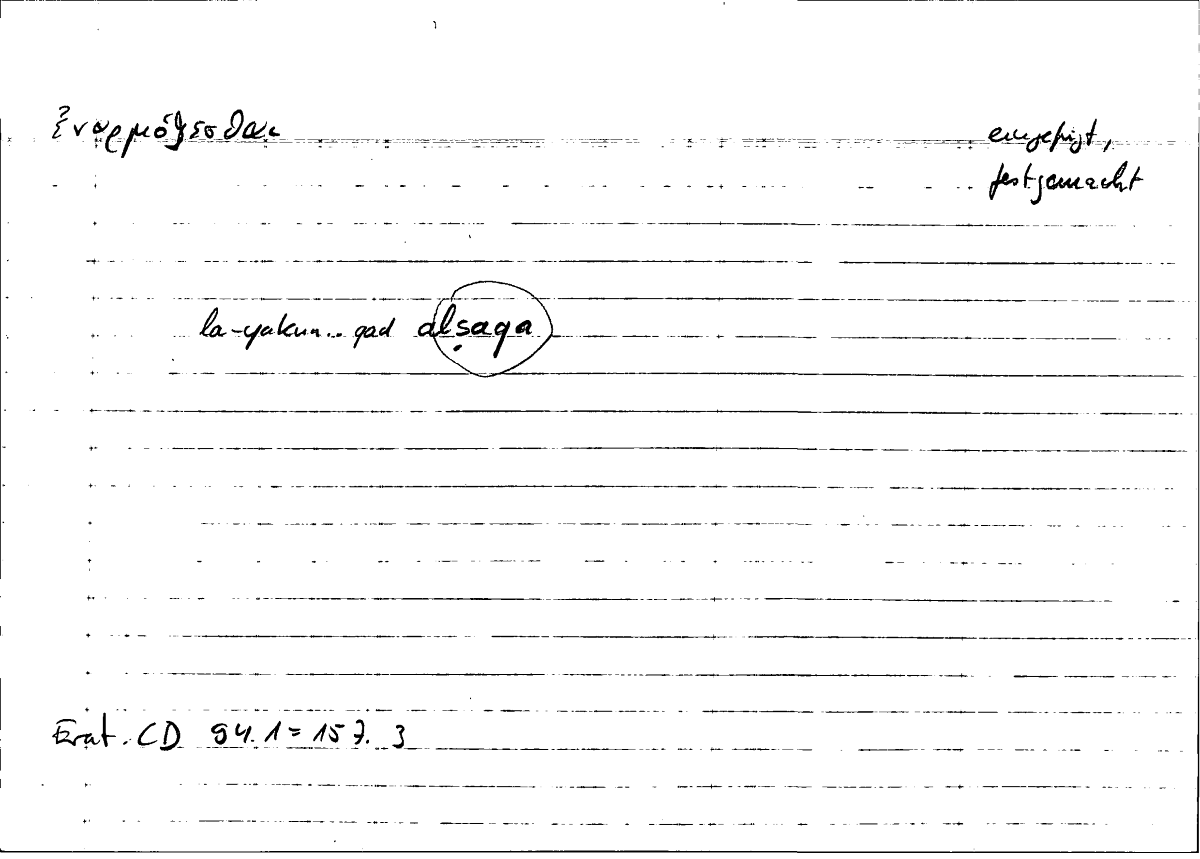 ἐναρμόζεσθαι
eingefügt,
festgemacht
la-yakun.. qad alṣaqa
Erat. CD 94.1 = 157. 3